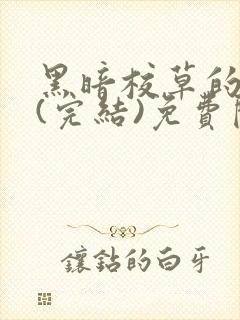 黑暗校草的
(完結)免費
鑲鈷的白牙